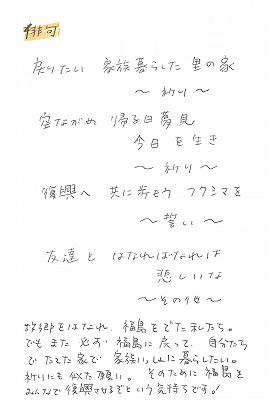 俳句
戻りたい 家族暮らした 里の家
～祈り～
空ながめ 帰る日夢見
今日を生き
～祈り～
復興へ 共に歩もう フクシマを
～誓い～
友達と はなればなれは
悲しいな
～その他～
故郷をはなれ、福島をでた私たち。
でもまた必ず福島に戻って、自分たち
でたてた家で家族いっしょに暮らしたい。
祈りにも似た願い。そのために福島を
みんなで復興させるぞという気持ちです！